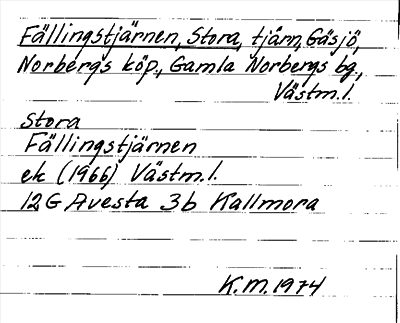 Fällingstjärnen, Stora, tjärn, Gäsjö,
Norbergs köp., Gamla Norbergs bg,
Västm.l.
Stora
Fällingstjärnen
ek (1966) Västm.l.
12G Avesta 3b Kallmora
K.M. 1974